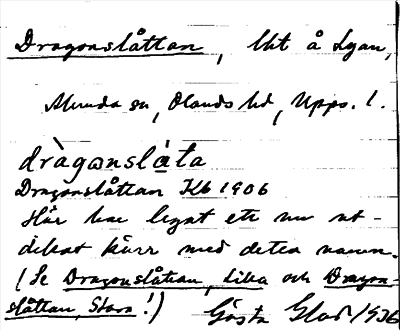 Dragonslåttan, lht å Lyan,
Munda sn, Olands hd, Upps. l.
dràgωnslå̀ta
Dragonslåttan Kb 1906
Här har legat ett nu ut-
dikat kärr med detta namn.
(Se Dragonslåttan, Lilla och Dragon-
slåttan, Stora!) Gösta Glad 1936